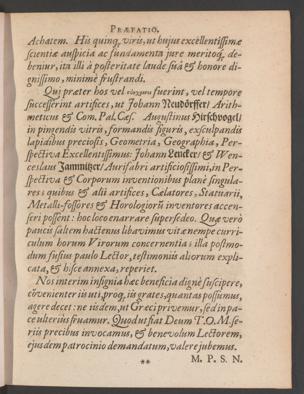 PRÆFATIO.
Achatem. His quinq, viris, ut hujus excellentissimæ
scientiæ auspicia ac fundamenta jure meritoq, de-
beniur, ita illi à posteritate laude suâ & honore di-
gnissimo, minimè frustrandi.
Qui præter hos vel σύγχρονοι fuerint, vel tempore
successerint artifices, ut Johann Neudörffer/ Arith-
meticus & Com. Pal. Cæs. Augustinus Hirschvogel/
in pingendis vitris, formandis figuris, exsculpandis
lapidibus preciosis, Geometria, Geographia, Per-
spectiva Excellentissimus: Johann Lencker/ & Wen-
ceslaus Jamnitzer/ Aurifabri artificiosissimi, in Per-
spectiva & Corporum inventionibus planè singula-
res: quibus & alii artifices, Cælatores, Statuarii,
Metalli-fossores & Horologiorũ inventores accen-
seri possent: hoc loco enarrare supersedeo. Quæ verò
paucis saltem hactenus libavimus vitæ nempe curri-
culum horum Virorum concernentia: illa postmo-
dum fusius paulo Lector, testimoniis aliorum expli-
cata, & hisce annexa, reperiet.
Nos interim insignia hæc beneficia dignè suscipere,
cõvenienter iis uti, proq, iis grates, quantas possumus,
agere decet: ne iisdem, ut Græci privemur, sed in pa-
ce ulterius fruamur. Quod ut fiat Deum T.O.M. se-
riis precibus invocamus, & benevolum Lectorem,
ejusdem patrocinio demandatum, valere jubemus.
** M. P. S. N.